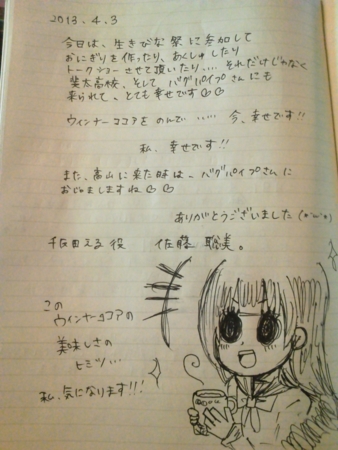 2013.4.3
今日は、生きびな祭に参加して
おにぎりを作ったり、あくしゅしたり
トークショーさせて頂いたり.... それだけじゃなく
斐太高校、そして バグパイプさんにも
来られて、とても幸せです♡♡
ウィンナーココアをのんで ..... 今、幸せです!!
私、幸せです!!
また、高山に来た時は、バグパイプさんに
おじゃましますね♡♡
ありがとうございました(*^ω^*)
千反田える役 佐藤 聡美。
この
ウィンナーココアの
美味しさの
ヒミツ...
私、気になります!!!